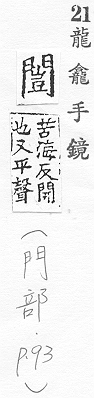 21 龍龕手鏡
闓
苦海反開
也又平聲
(門部．p.93)